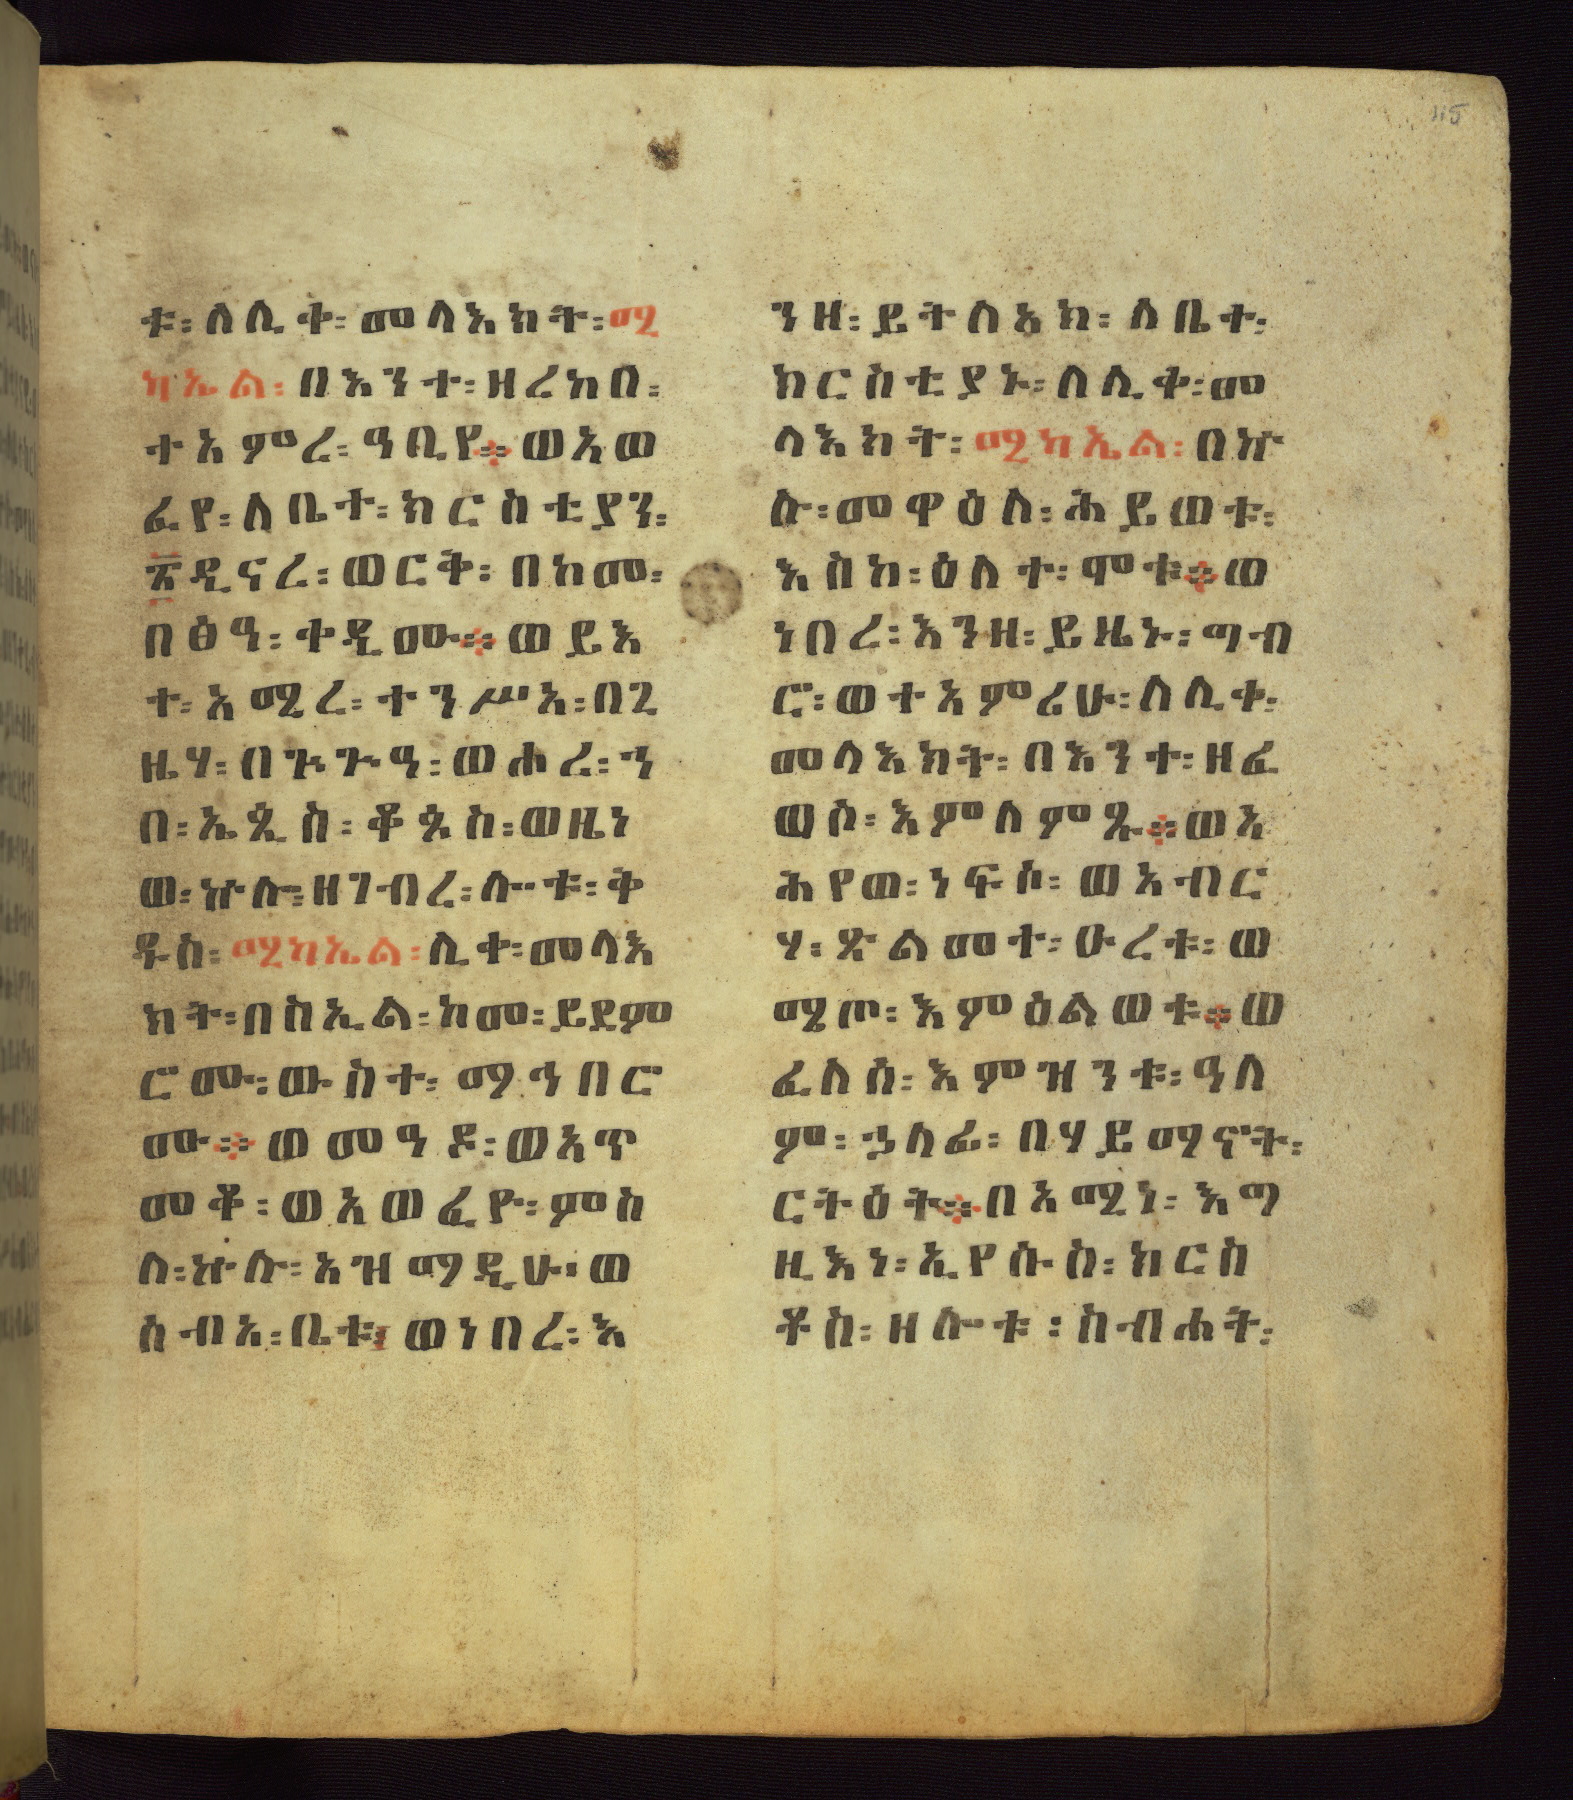 115
ቱ፡ለሊቀ፡መላእክት፡ሚ
ካኤል፡በእንተ፡ዘረከበ፡
ተአምረ፡ዓቢየ፨ወአወ
ፈየ፡ለቤተ፡ክርስቲያን፡
፳ዲናረ፡ወርቅ፡በከመ፡
በፅዓ፡ቀዲሙ፨ወይእ
ተ፡አሚረ፡ተንሥአ፡በጊ
ዜሃ፡በጕጕዓ፡ወሐረ፡ኀ
በ፡ኤጲስ፡ቆጶስ፡ወዜነ
ወ፡ኵሎ፡ዘገብረ፡ሎቱ፡ቅ
ዱስ፡ሚካኤል፡ሊቀ፡መላእ
ክት፡በስኢል፡ከመ፡ይደም
ሮሙ፡ውስተ፡ማኅበሮ
ሙ፨ወመዓዶ፡ወአጥ
መቆ፡ወአወፈዮ፡ምስ
ለ፡ኵሉ፡አዝማዲሁ፡ወ
ሰብአ፡ቤቱ፡ወነበረ፡እ
ንዘ፡ይትለአክ፡ለቤተ፡
ክርስቲያኑ፡ለሊቀ፡መ
ላእክት፡ሚካኤል፡በኵ
ሉ፡መዋዕለ፡ሕይወቱ፡
እስከ፡ዕለተ፡ሞቱ፨ወ
ነበረ፡እንዘ፡ይዜኑ፡ግብ
ሮ፡ወተአምሪሁ፡ለሊቀ፡
መላእክት፡በእንተ፡ዘፈ
ወሶ፡እምለምጹ፨ወአ
ሕየወ፡ነፍሶ፡ወአብር
ሃ፡ጽልመተ፡ዑረቱ፡ወ
ሜጦ፡እምዕልወቱ፨ወ
ፈለሰ፡እምዝንቱ፡ዓለ
ም፡ኃላፊ፡በሃይማኖት፡
ርትዕት፨በአሚነ፡እግ
ዚእነ፡ኢየሱስ፡ክርስ
ቶስ፡ዘሎቱ፡ስብሐት፡